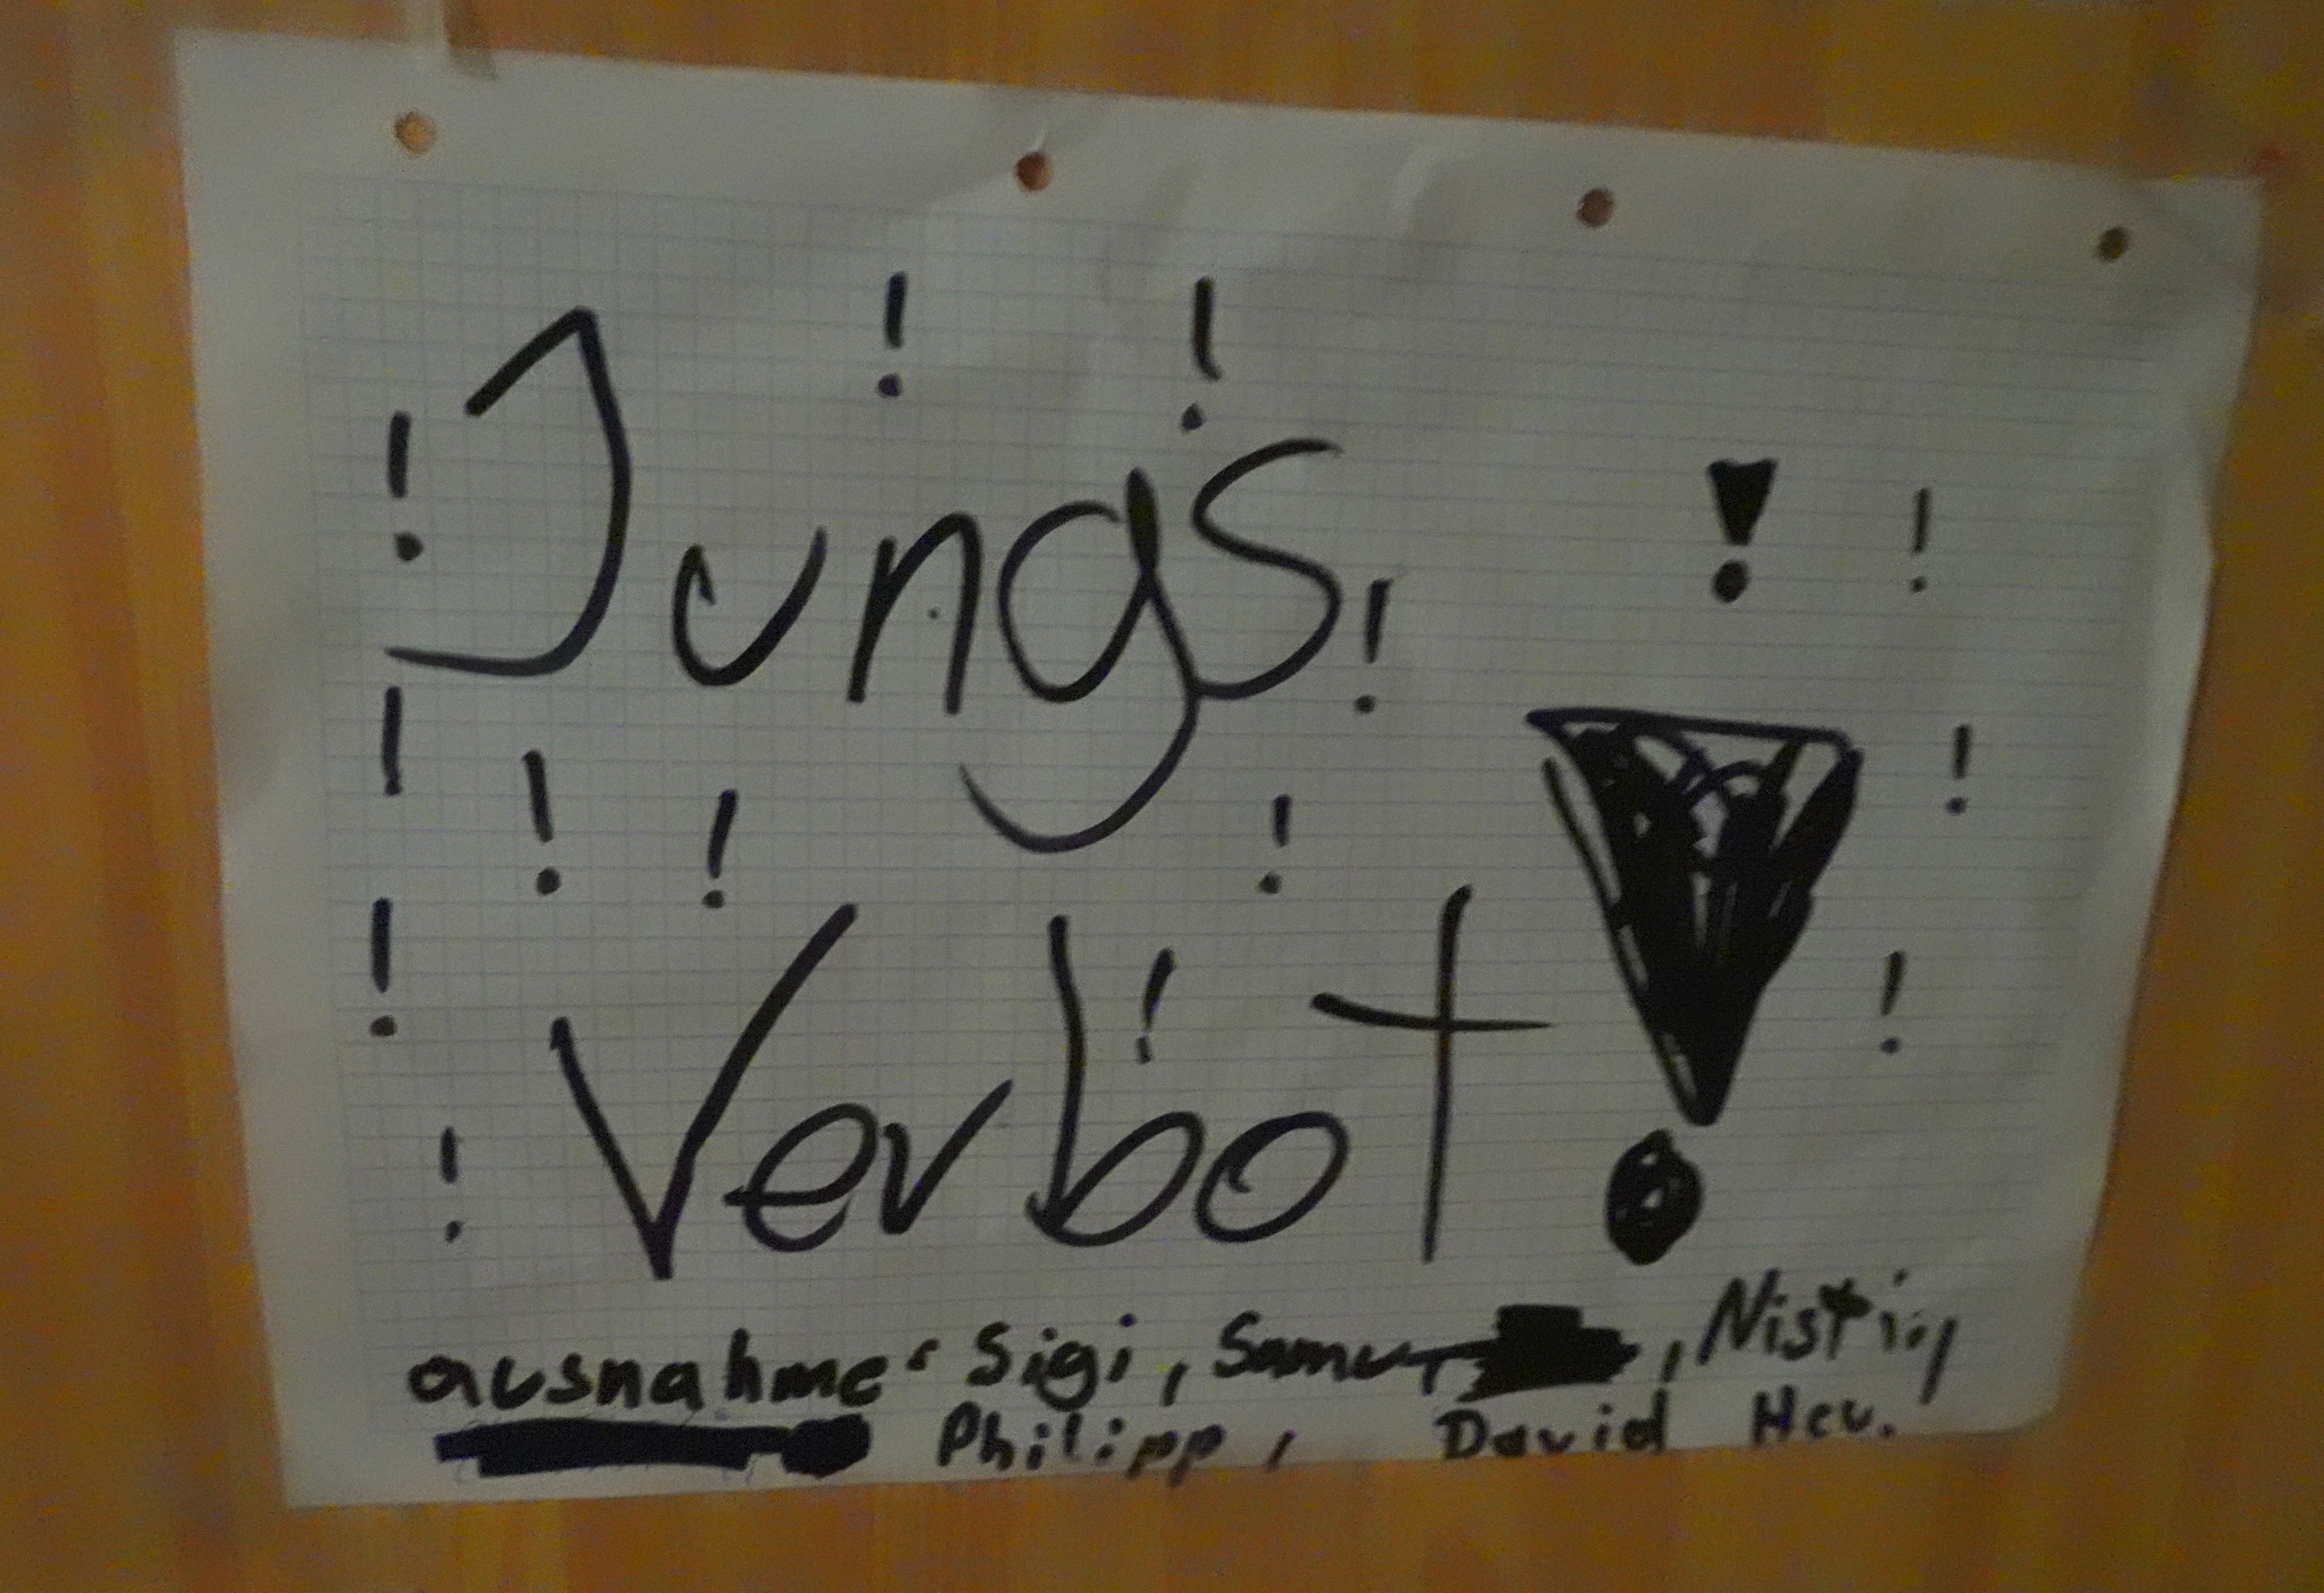 ! ! !
Jungs !
! !
! ! ! !
! Verbot ! !
!
ausnahme: Sigi, Samu
Philipp, David Heu.